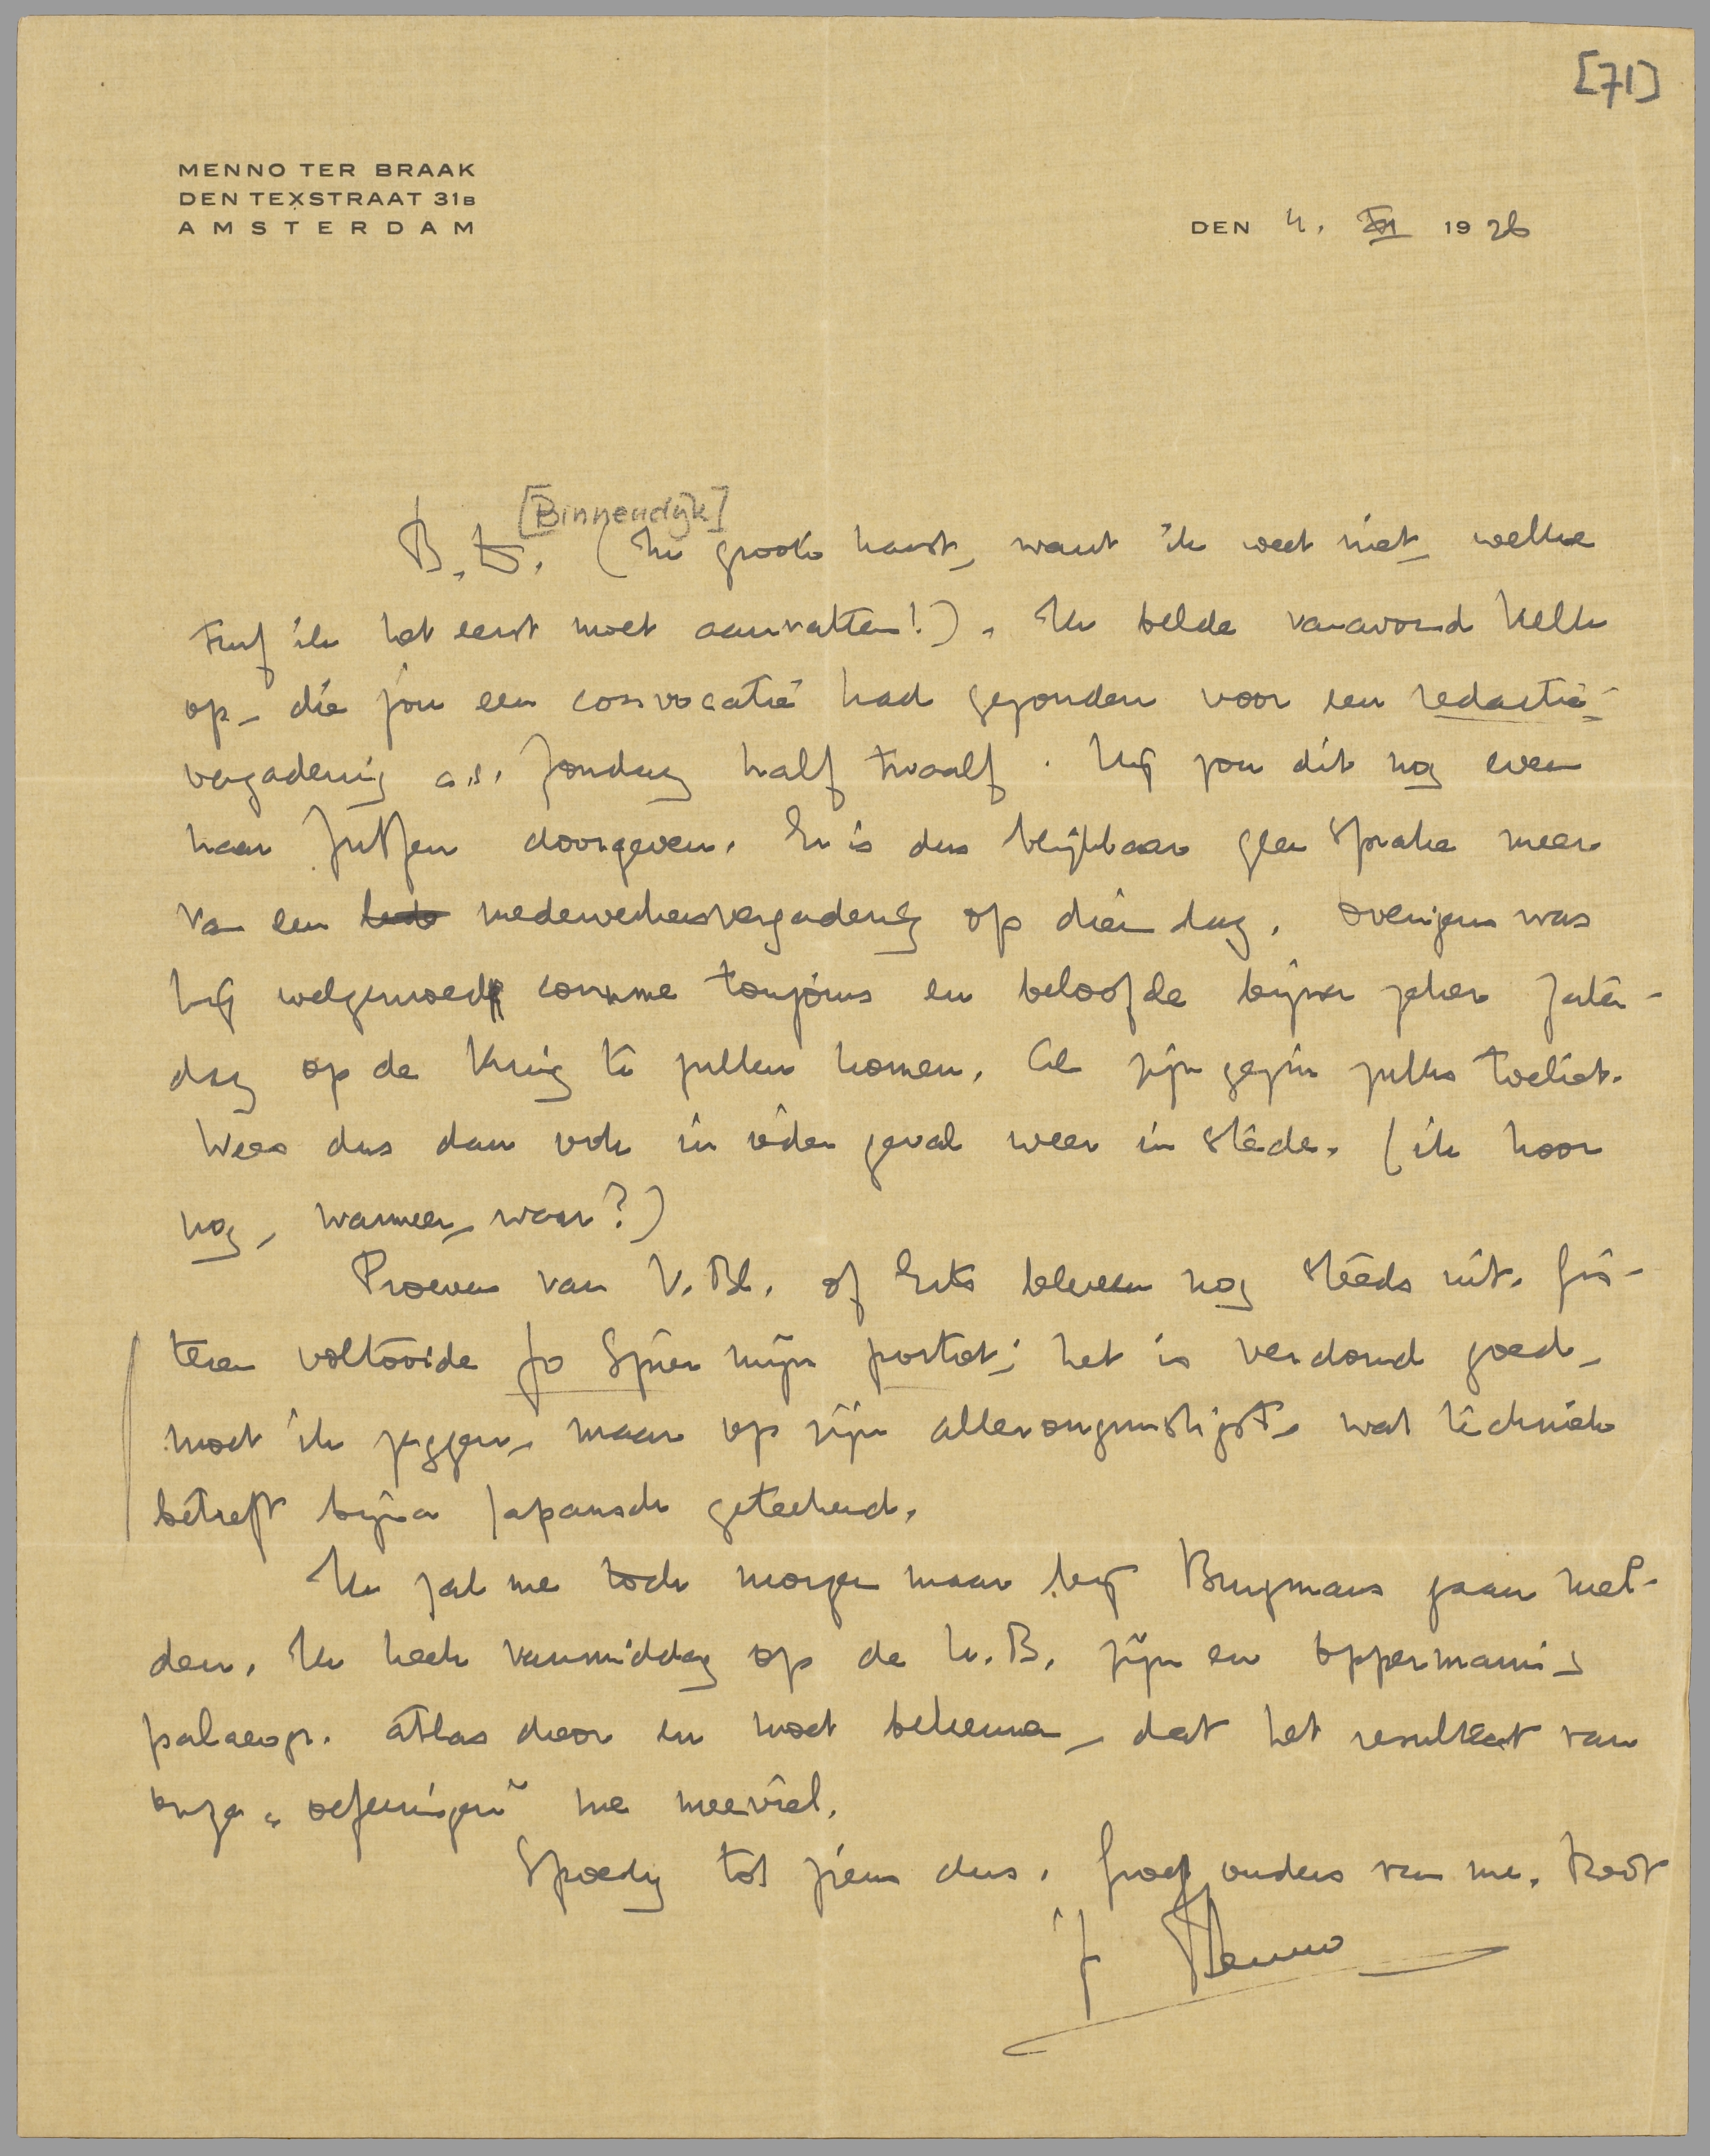 [71]
MENNO TER BRAAK
DEN TEXSTRAAT 31B
AMSTERDAM
DEN 4. XI 1926
[Binnendijk]
B. D. (In groote haast, want ik weet niet, welke
ik het eerst moet aanvatten!). Ik belde vanavond Kelk
op, die jou een convocatie had gezonden voor een redactie-
vergadering a.s. Zondag half twaalf. Hij zou dit nog even
naar Zutfen doorgeven. Er is dus blijkbaar geen sprake meer
van een medewerkersvergadering op dien dag. Overigens was
hij welgemoed comme toujours en beloofde bijna zeker Zater-
dag op de Kring te zullen komen, als zijn gezin zulks toeliet.
Wees dus dan ook in ieder geval weer in stede. (ik hoor
nog, wanneer, waar?)
Proeven van V. Bl. of Erts bleven nog steeds uit. Gis-
teren voltooide Jo Spier mijn portret; het is verdomd goed,
moet ik zeggen, maar op zijn allerongunstigst, wat techniek
betreft bijna Japansch geteekend.
Ik zal me toch morgen maar bij Brugmans gaan mel-
den. Ik keek vanmiddag op de U.B. zijn en Oppermann's
palaeogr. atlas door en moet bekennen, dat het resultaat van
onze „oefeningen" me meeviel.
Spoedig tot ziens dus. Groet ouders van me. Poot
je Menno